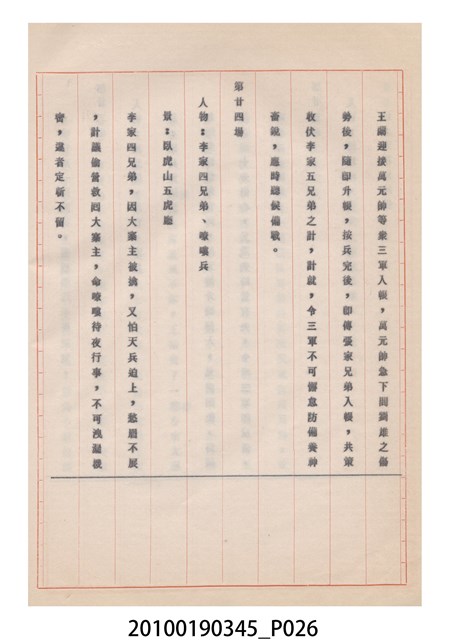 王蘭迎接萬元帥等衆三軍入帳，萬元帥急下問劉雄之傷
勞後，隨即升帳，按兵完後，即傳張家兄弟入帳，共策
收伏李家五兄弟之計，計就，令三軍不可懈怠防備養神
畜銳，應時聽候備戰。
第廿四場
人物：李家四兄弟、嘍囉兵
景：臥虎山五虎廳
李家四兄弟，因大寨主被擒，又怕天兵追上，愁眉不展
，計議偷營救回大寨主，命嘍囉待夜行事，不可洩漏機
密，違者定斬不留。
20100190345_P026